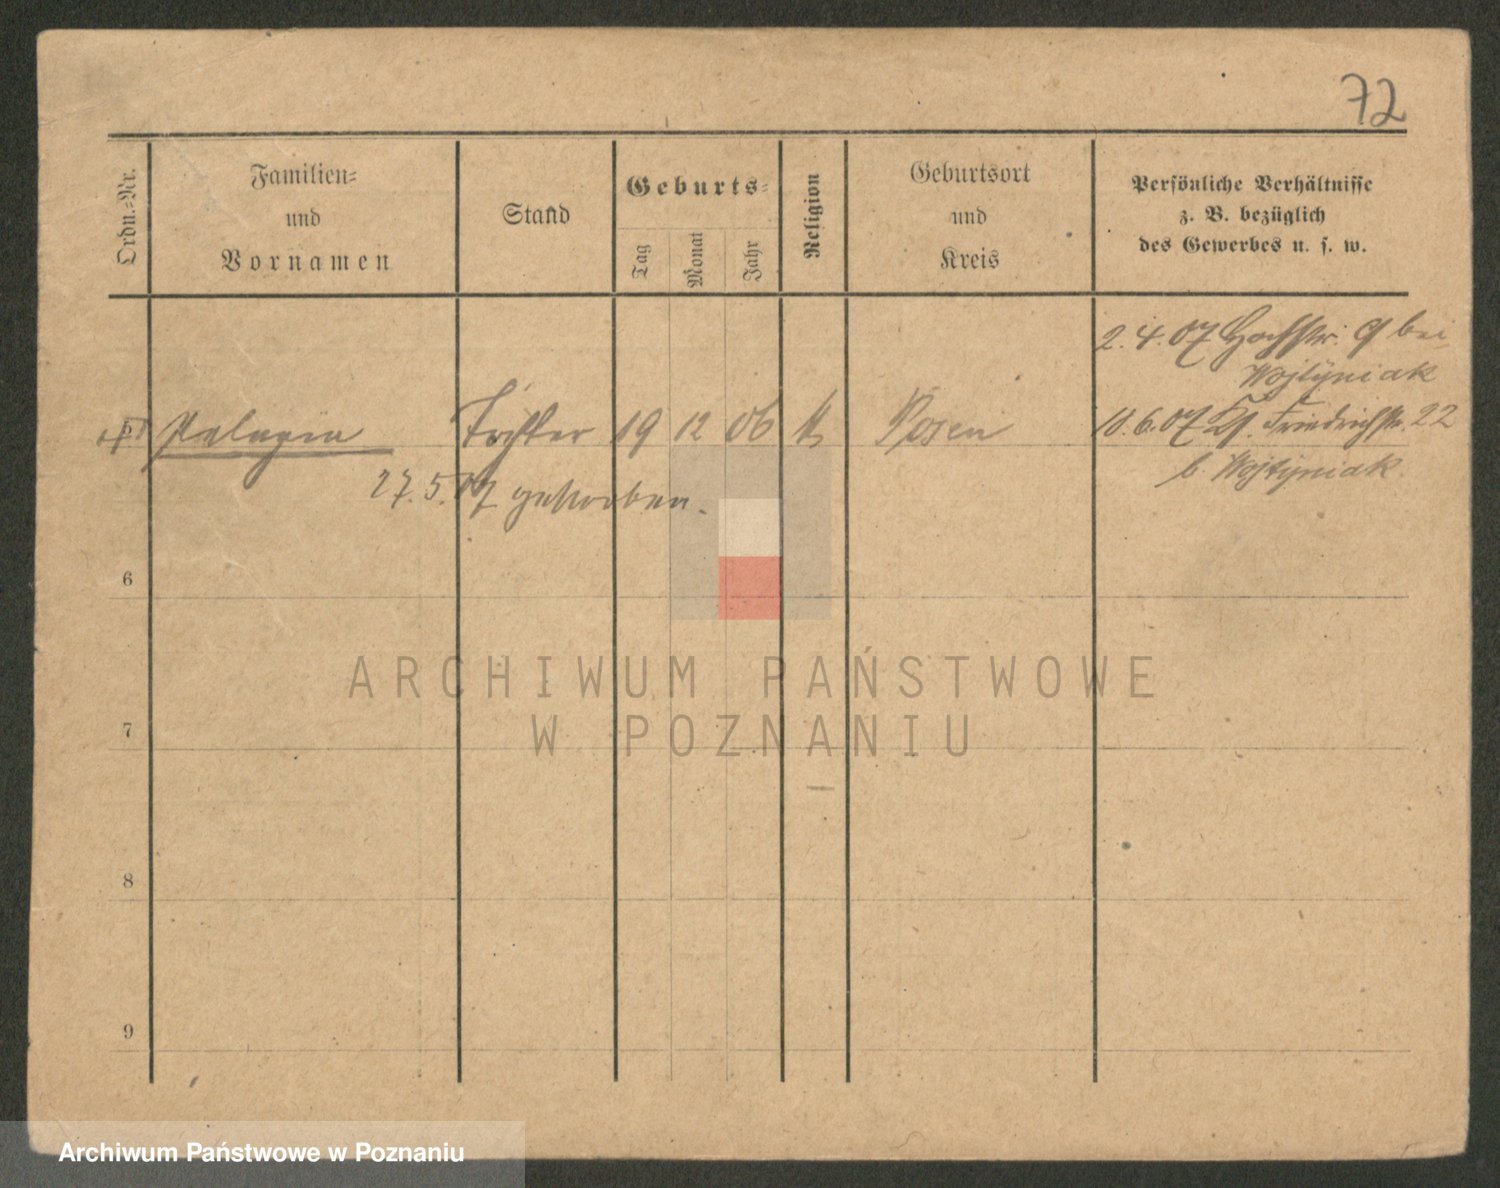 72
Ordn.-Nr.
Familien-
und
Vornamen
Stand
Geburts-
Tag
Monat
Jahr
Religion
Geburtsort
und
Kreis
Persönliche Verhältnisse
z. B. bezüglich
des Gewerbes u. s. w.
2.4.07 Hochstr. 9 bei
Wojtÿniak
5 Pelagia Tochter 19 12 06 k Posen 10.6.07 Kl. Friedrichstr. 22
b. Wojtÿniak
27.5.07 gestorben.
6
7
8
9
ARCHIWUM PAŃSTWOWE
W POZNANIU
Archiwum Państwowe w Poznaniu